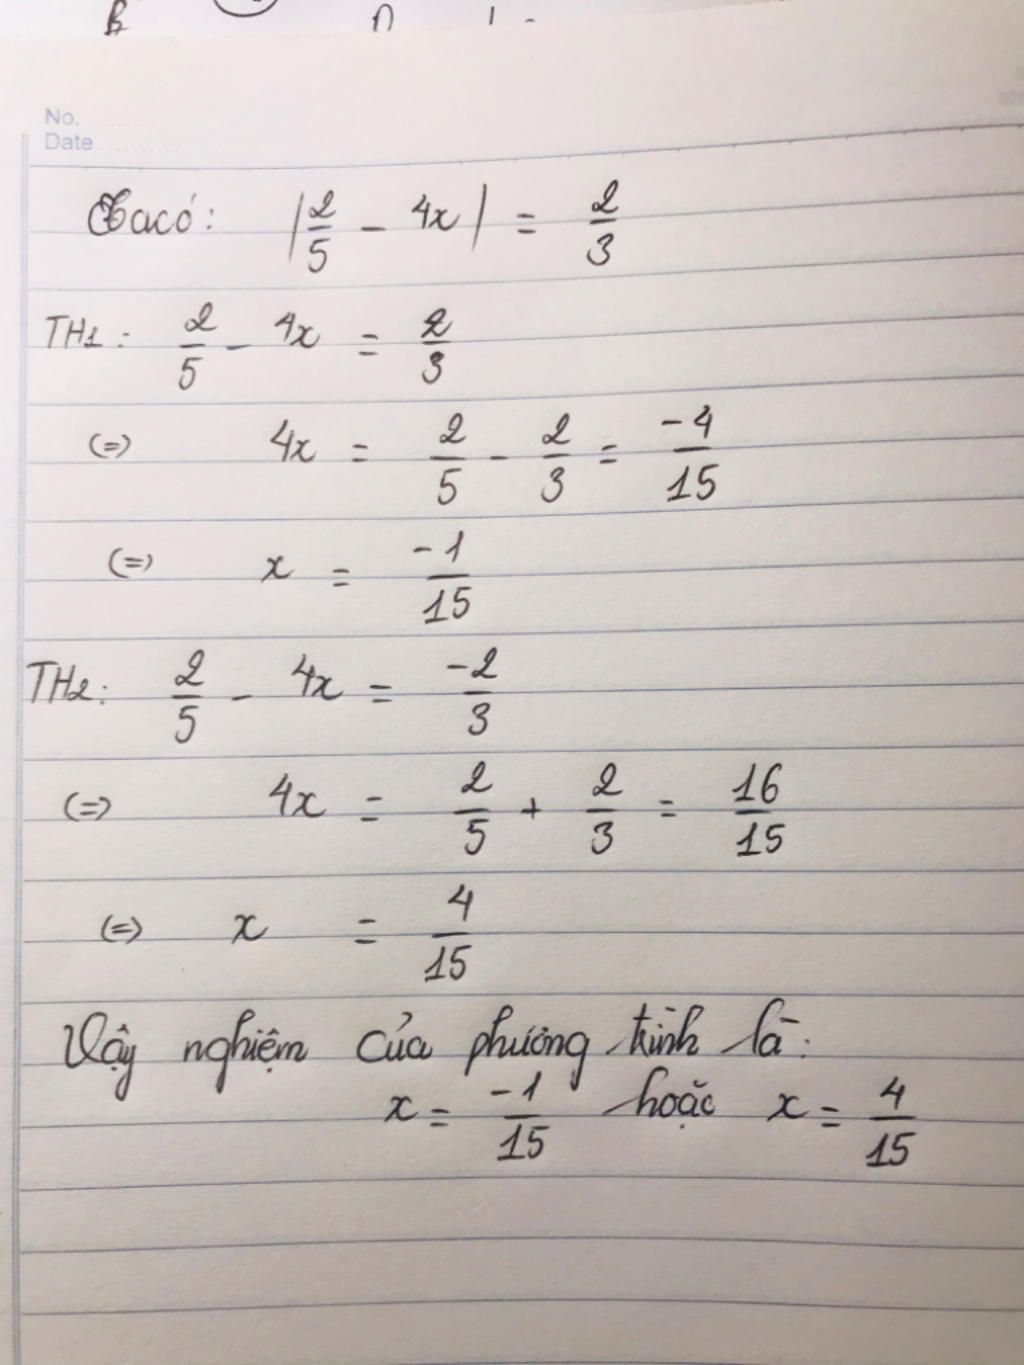 No.
Date
Ta có: |2/5 - 4x| = 2/3
TH1: 2/5 - 4x = 2/3
(=) 4x = 2/5 - 2/3 = -4/15
(=) x = -1/15
TH2: 2/5 - 4x = -2/3
(=) 4x = 2/5 + 2/3 = 16/15
(=) x = 4/15
Vậy nghiệm của phương trình là:
x = -1/15 hoặc x = 4/15